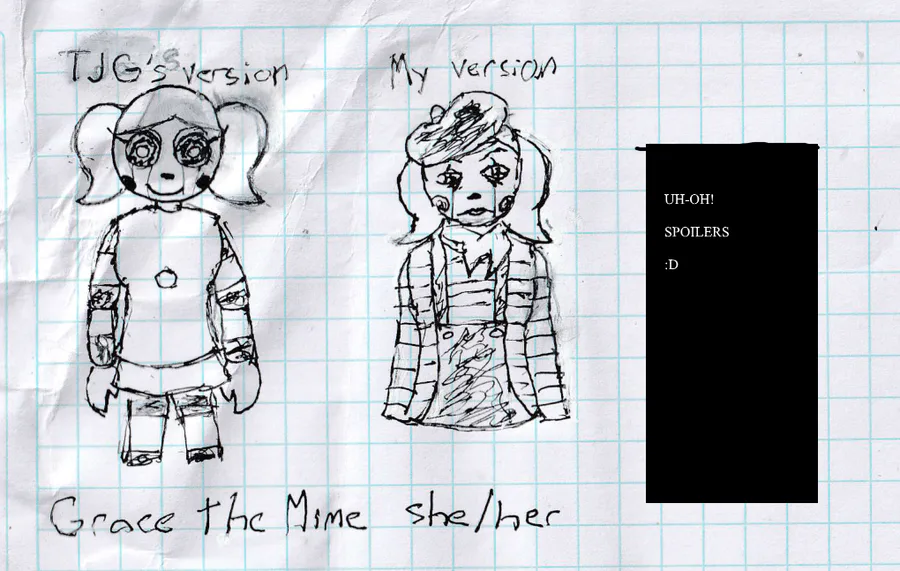 TJG's version
My version
UH-OH!
SPOILERS
:D
Grace the Mime she/her